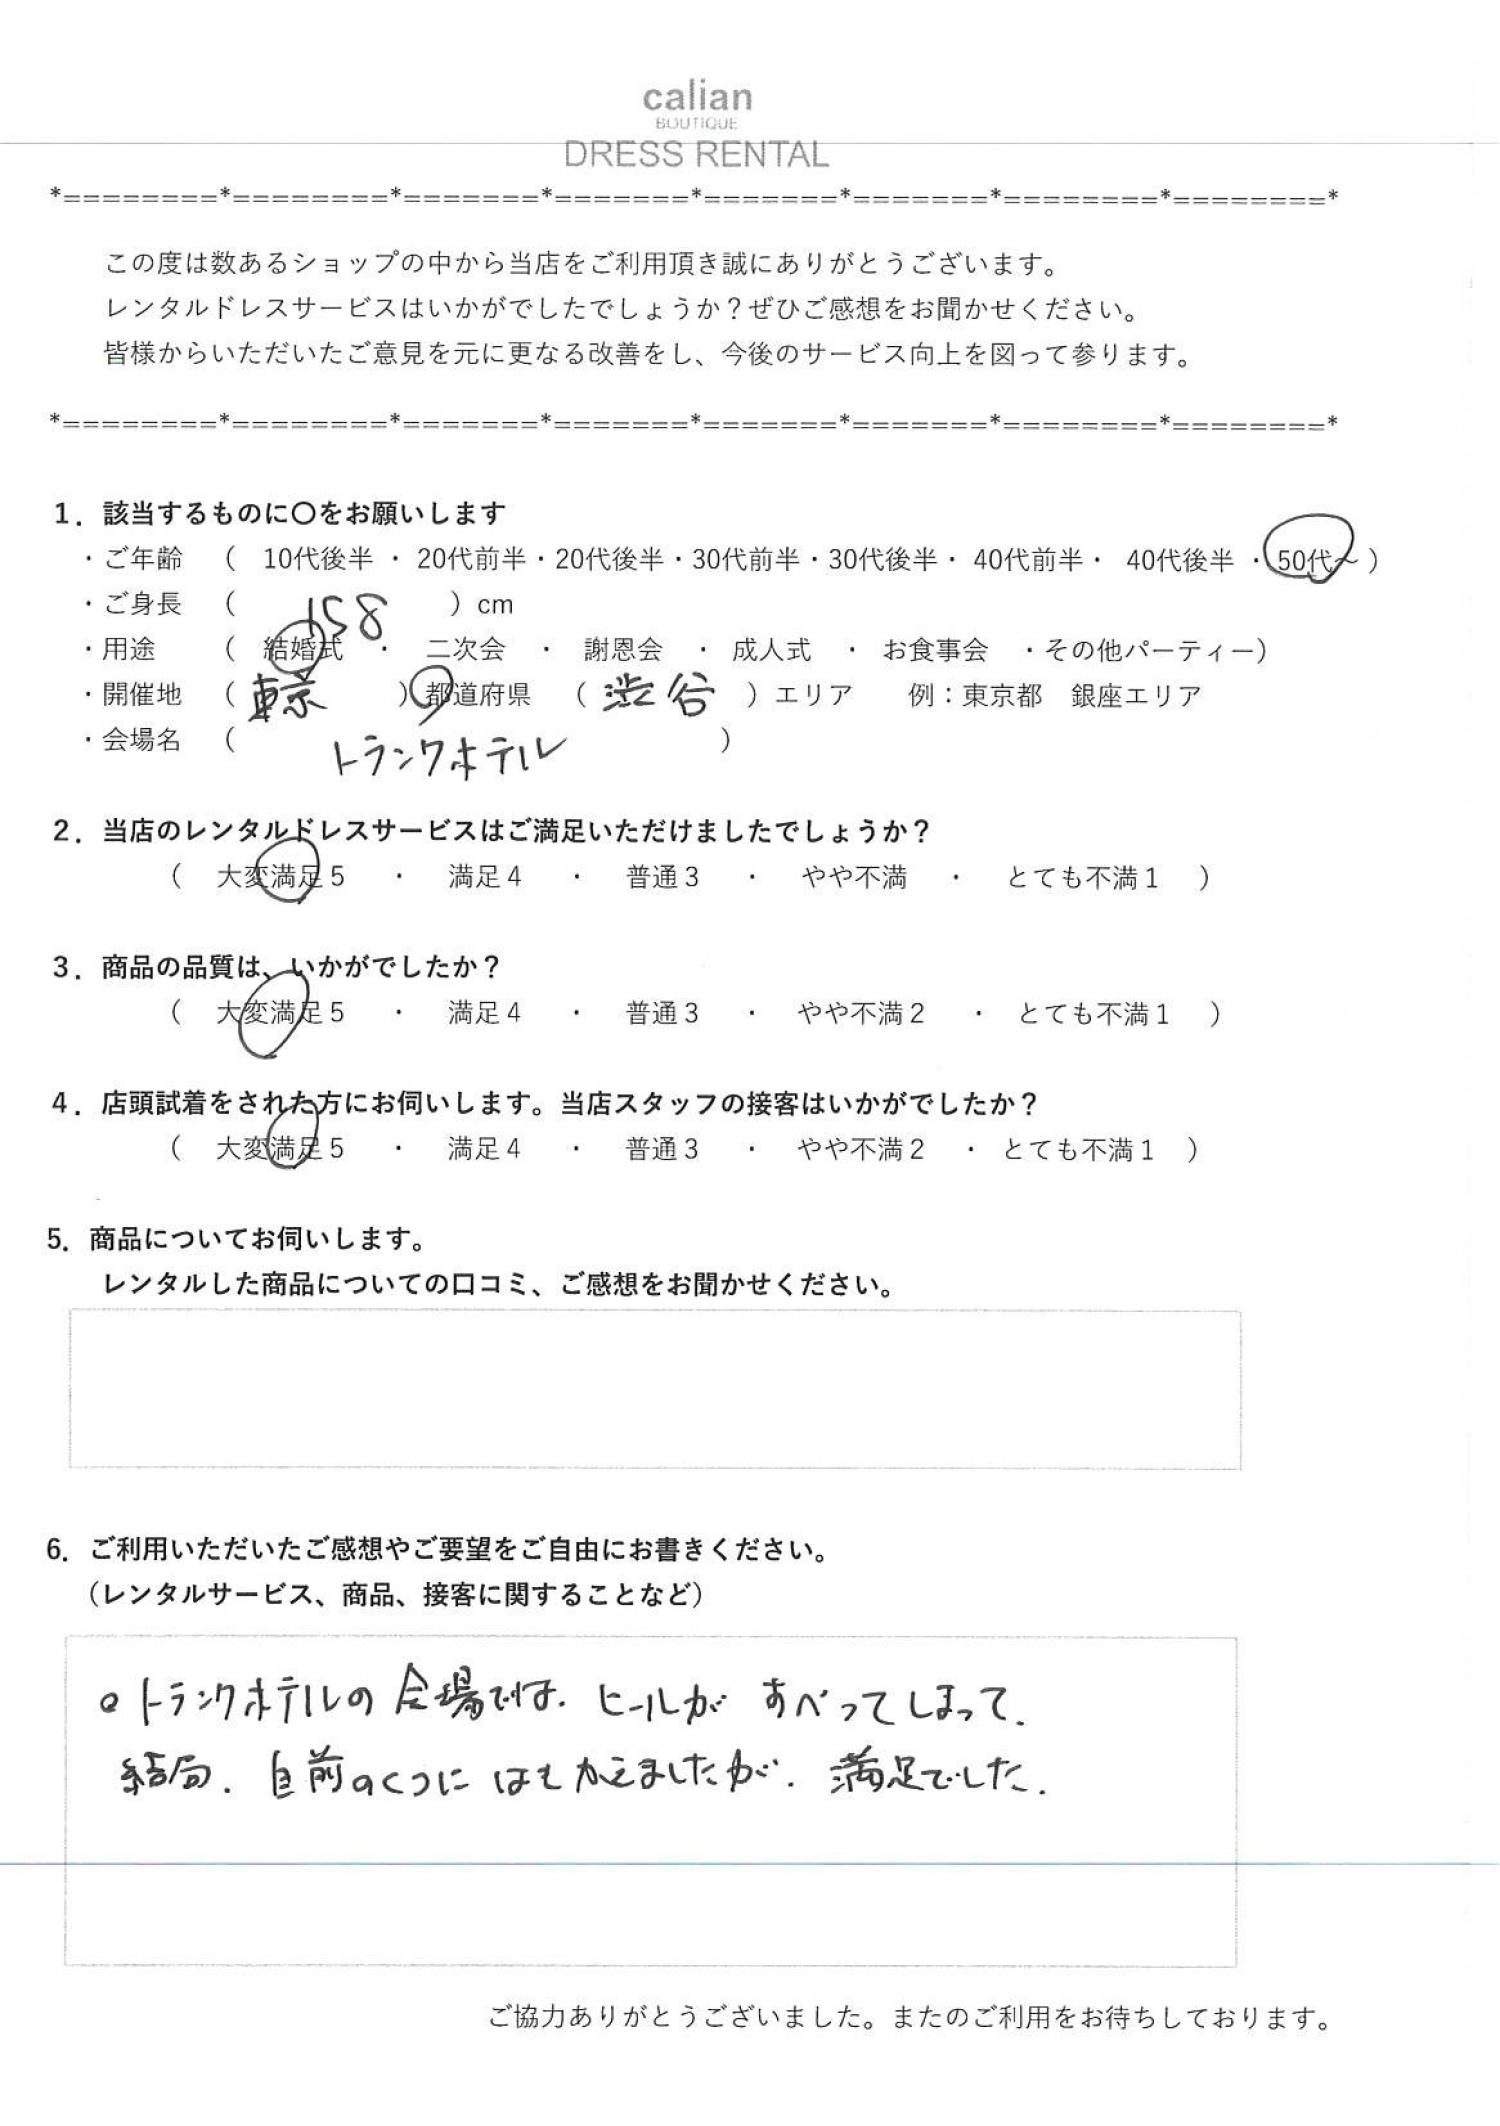 calian
BOUTIQUE
DRESS RENTAL
*========*========*=======*=======*=======*=======*========*========*
この度は数あるショップの中から当店をご利用頂き誠にありがとうございます。
レンタルドレスサービスはいかがでしたでしょうか？ぜひご感想をお聞かせください。
皆様からいただいたご意見を元に更なる改善をし、今後のサービス向上を図って参ります。
*========*========*=======*=======*=======*=======*========*========*
1．該当するものに〇をお願いします
・ご年齢 （ 10代後半 ・ 20代前半・20代後半・30代前半・30代後半・ 40代前半・ 40代後半 ・50代～ ）
・ご身長 （ 158 ）cm
・用途 （ 結婚式 ・ 二次会 ・ 謝恩会 ・ 成人式 ・ お食事会 ・その他パーティー）
・開催地 （ 東京 ）都道府県 （ 渋谷 ）エリア 例：東京都 銀座エリア
・会場名 （ トランクホテル ）
2．当店のレンタルドレスサービスはご満足いただけましたでしょうか？
（ 大変満足５ ・ 満足４ ・ 普通３ ・ やや不満 ・ とても不満１ ）
3．商品の品質は、いかがでしたか？
（ 大変満足５ ・ 満足４ ・ 普通３ ・ やや不満２ ・ とても不満１ ）
4．店頭試着をされた方にお伺いします。当店スタッフの接客はいかがでしたか？
（ 大変満足５ ・ 満足４ ・ 普通３ ・ やや不満２ ・ とても不満１ ）
5．商品についてお伺いします。
レンタルした商品についての口コミ、ご感想をお聞かせください。
6．ご利用いただいたご感想やご要望をご自由にお書きください。
（レンタルサービス、商品、接客に関することなど）
○トランクホテルの会場では、ヒールがすべってしまって、
結局、自前のくつにはきかえましたが、満足でした。
ご協力ありがとうございました。またのご利用をお待ちしております。